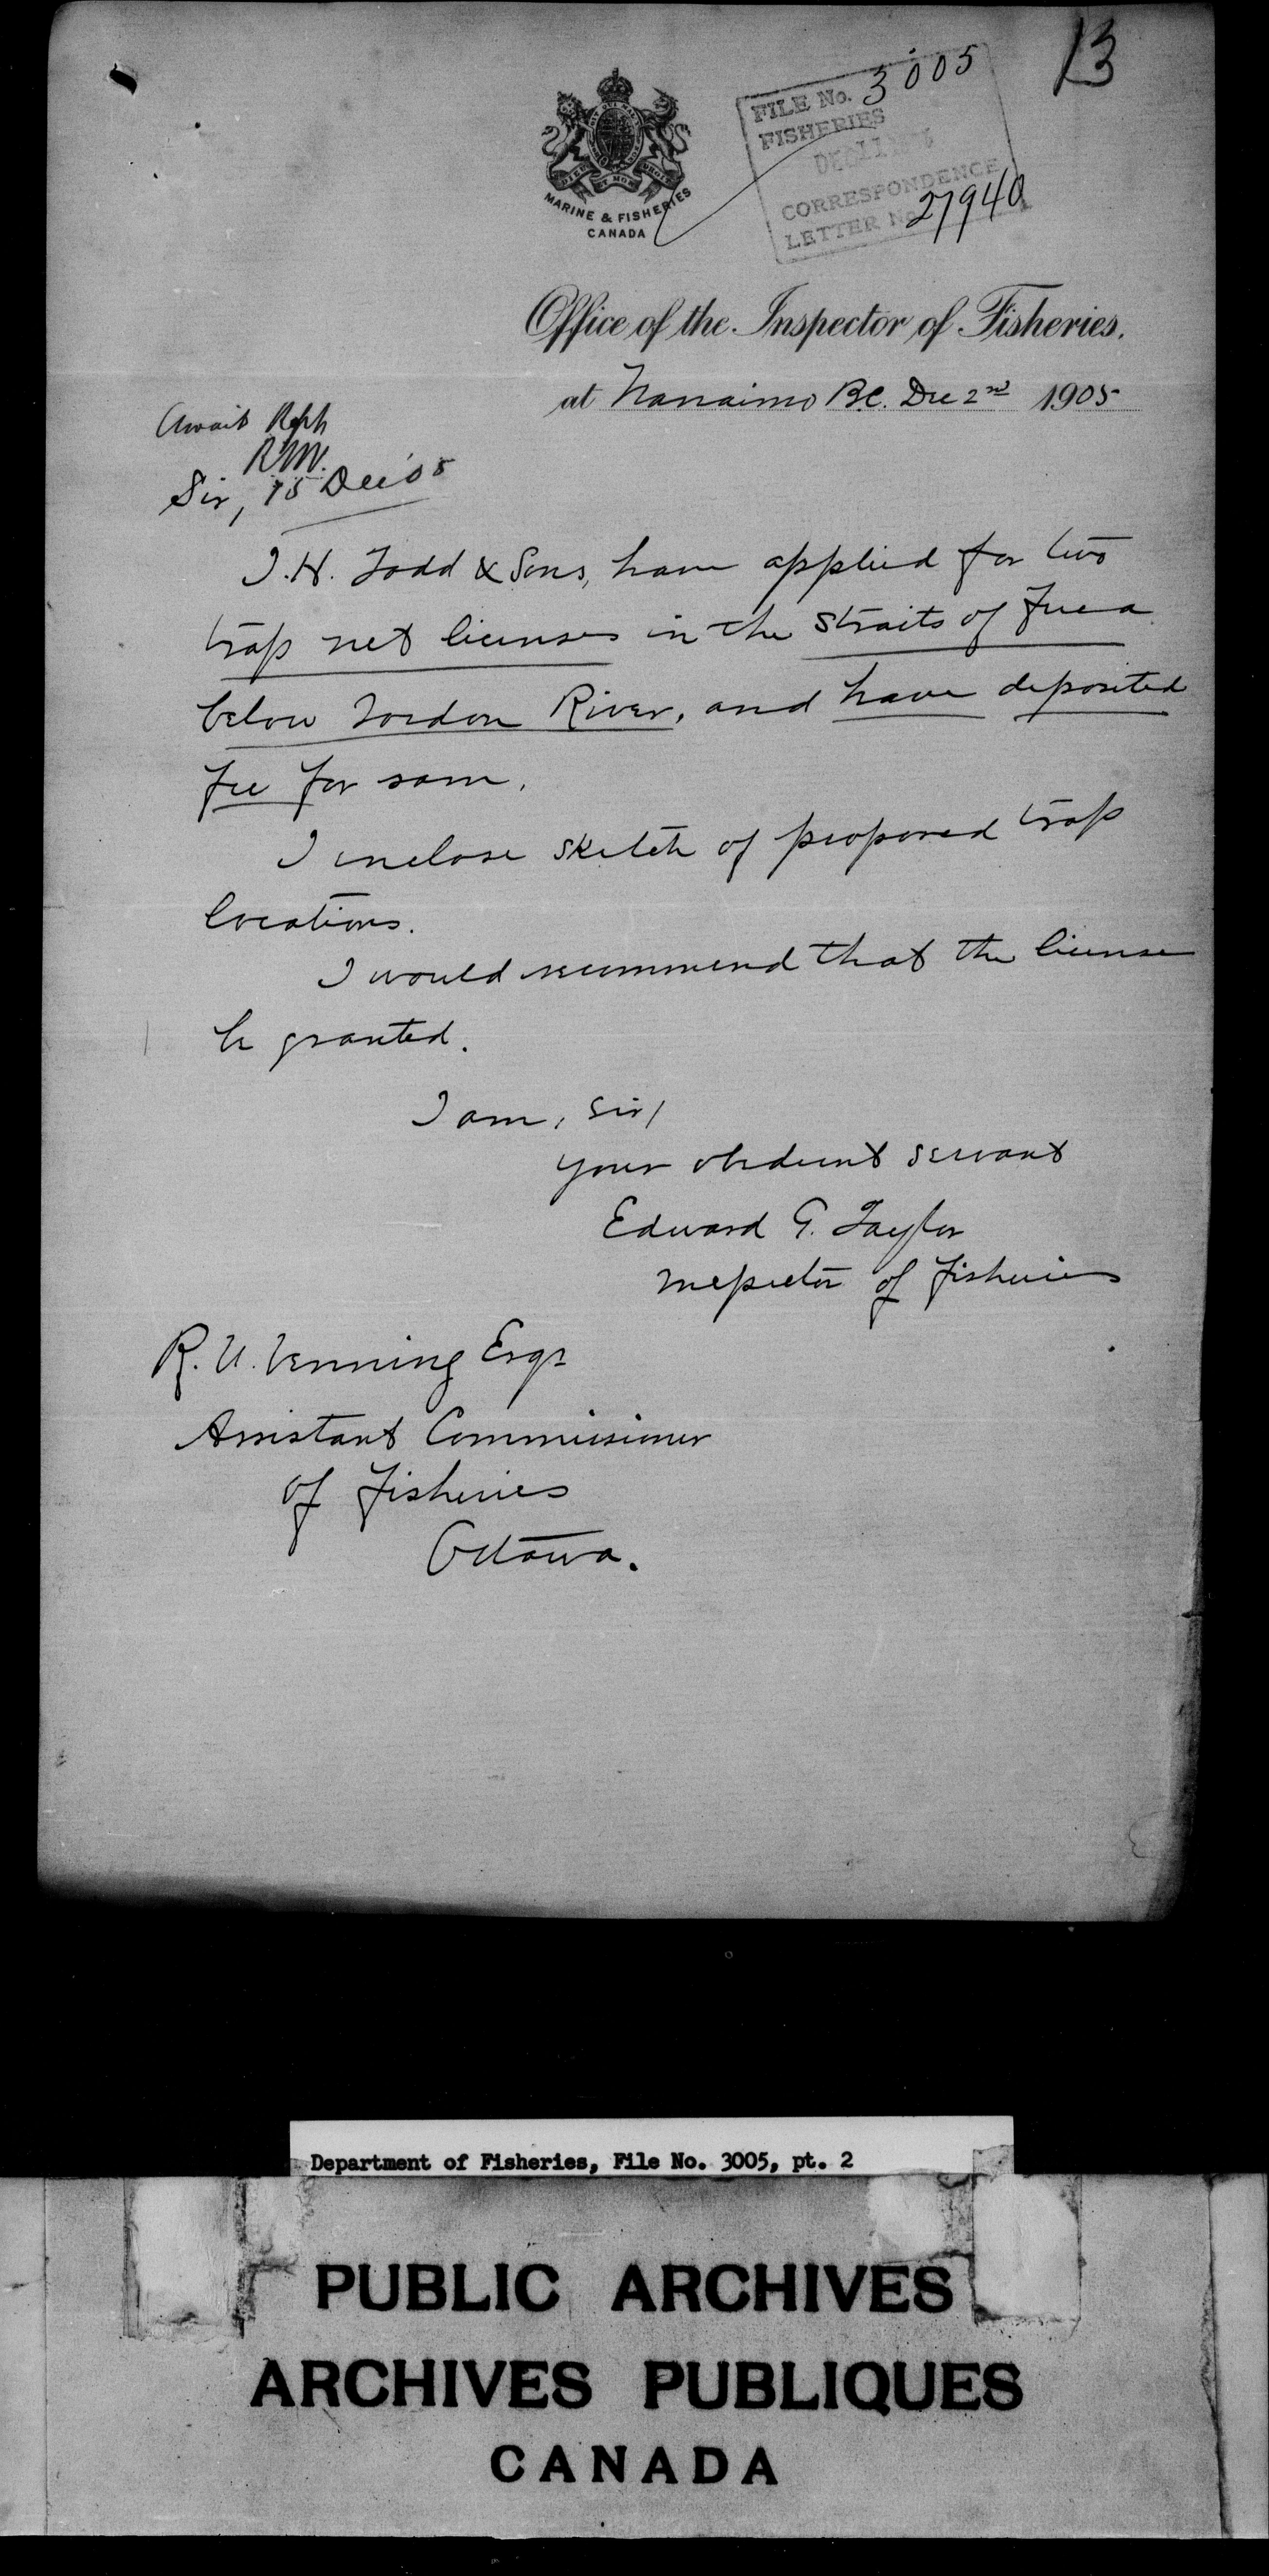 13
FILE No. 3005
FISHERIES
DEC 11 1905
CORRESPONDENCE
LETTER No. 27940
DIEU ET MON DROIT
MARINE & FISHERIES
CANADA
Office of the Inspector of Fisheries.
at Nanaimo B.C. Dec 2nd 1905
Await
15 Dec '05
Sir,
J.H. Todd & Sons, have applied for two
trap net licenses in the Straits of Fuca
below Jordon River, and have deposited
fee for same.
I inclose sketch of proposed trap
locations.
I would recommend that the license
be granted.
I am, Sir,
your obedient servant
Edward G. Taylor
Inspector of Fisheries
R. N. Venning Esqr
Assistant Commissioner
of Fisheries
Ottawa.
Department of Fisheries, File No. 3005, pt. 2
PUBLIC ARCHIVES
ARCHIVES PUBLIQUES
CANADA